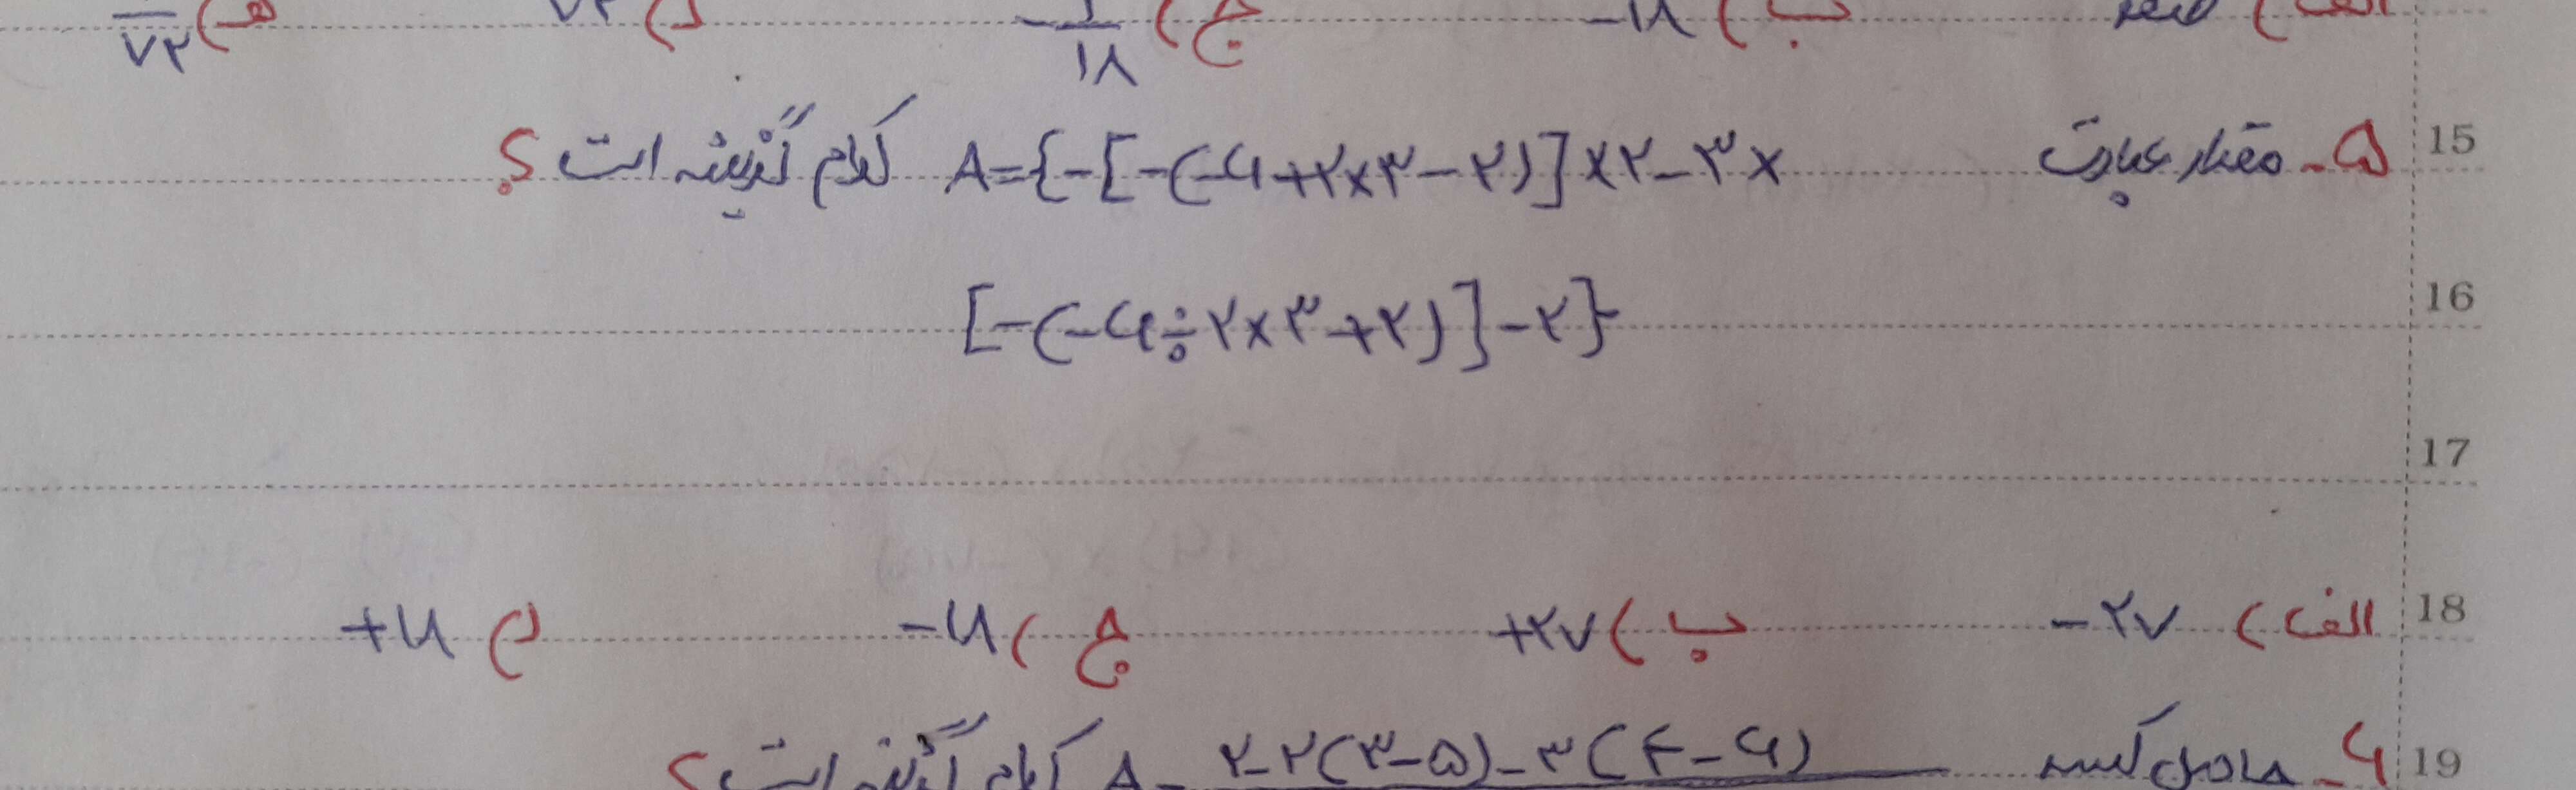 الف) صفر ب) -۱۸ ج) -۱/۱۸ د) ۷۲ ه) ۱/۷۲
15
۵- مقدار عبارت A={-[-(-۶+۲×۳-۲)]×۲-۳× کدام گزینه است؟
16
[-(-۶÷۲×۳+۲)]-۲}
17
18
الف) -۲۷ ب) +۲۷ ج) -۲۱ د) +۲۱
19
۶- حاصل کسر A= ۲-۲(۳-۵)-۳(۴-۶) کدام گزینه است؟